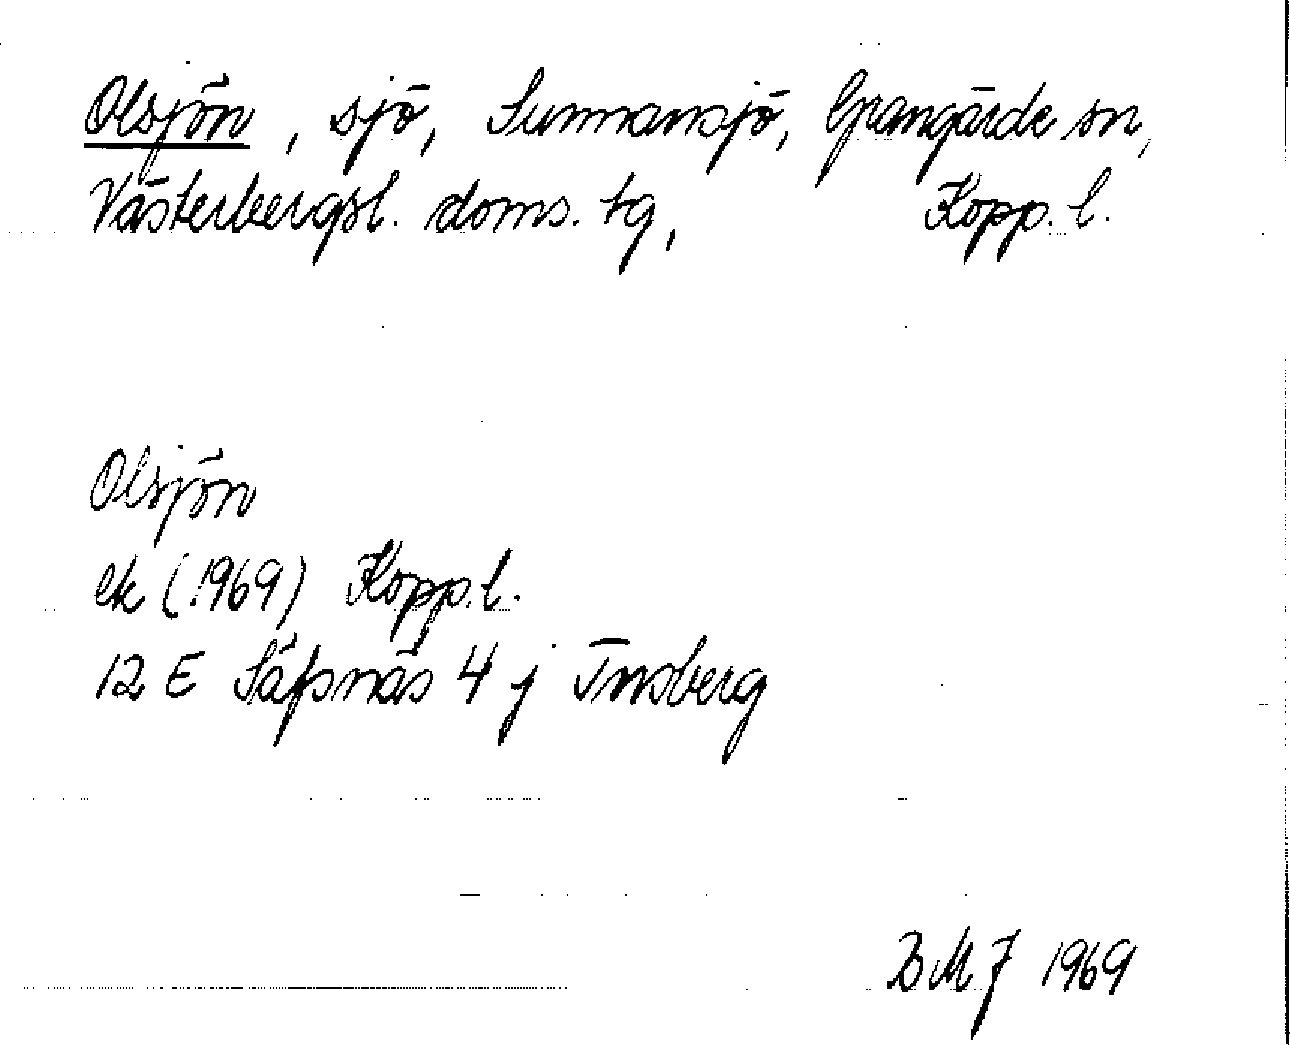 Olsjön, sjö, Sunnansjö, Grangärde sn,
Västerbergsl. doms. tg, Kopp. l.
Olsjön
ek (1969) Kopp. l.
12 E Säfsnäs 4 j Tnsberg
BMJ 1969